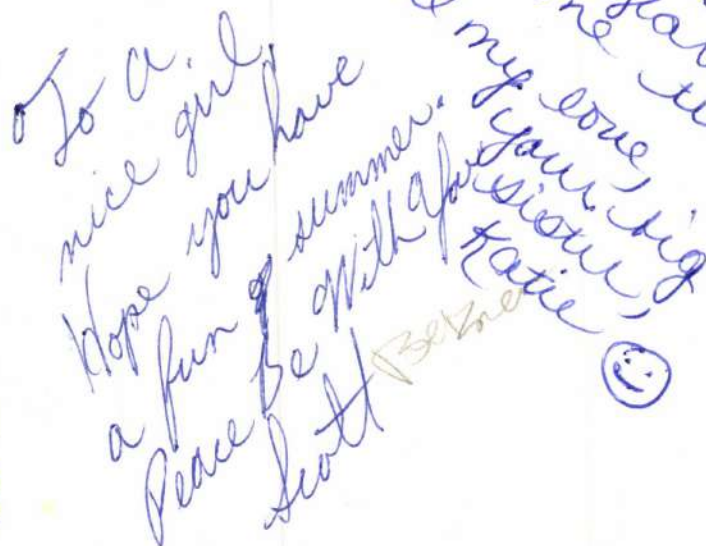 To a
nice girl.
Hope you have
a fun summer.
Peace Be With You
Scott
my love,
your big
sister,
Katie